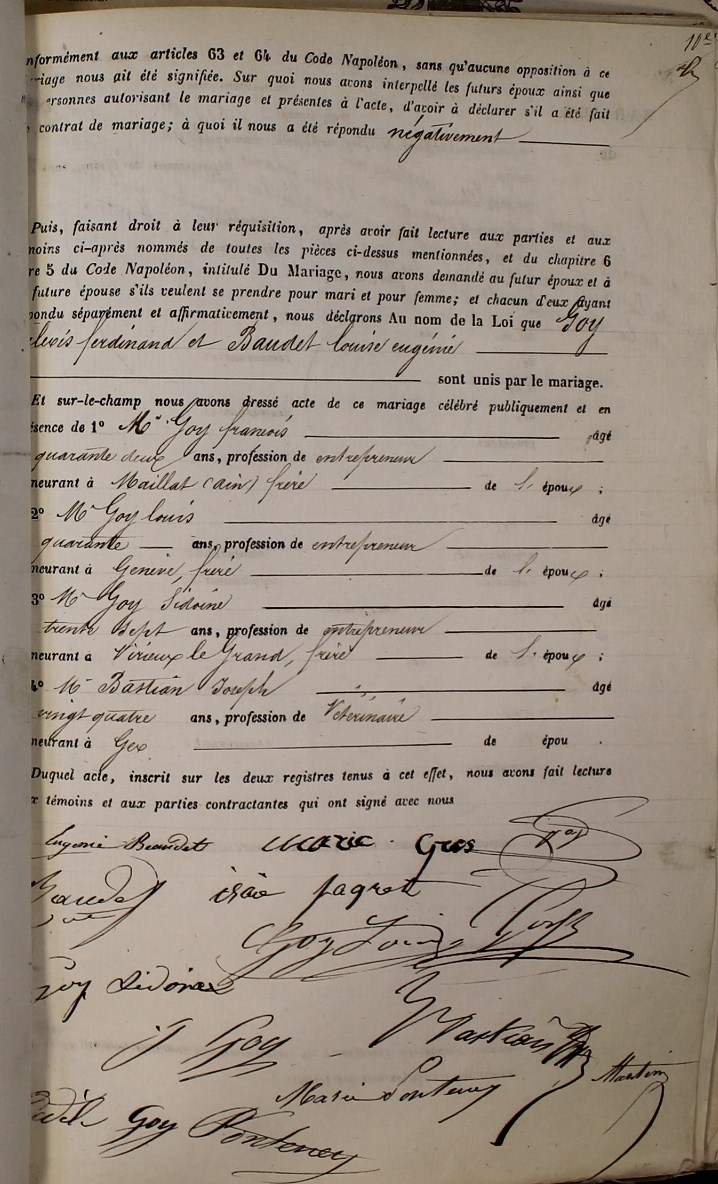 nformément aux articles 63 et 64 du Code Napoléon, sans qu'aucune opposition à ce
riage nous ait été signifiée. Sur quoi nous avons interpellé les futurs époux ainsi que
ersonnes autorisant le mariage et présentes à l'acte, d'avoir à déclarer s'il a été fait
contrat de mariage; à quoi il nous a été répondu négativement
Puis, faisant droit à leur réquisition, après avoir fait lecture aux parties et aux
moins ci-après nommés de toutes les pièces ci-dessus mentionnées, et du chapitre 6
re 5 du Code Napoléon, intitulé Du Mariage, nous avons demandé au futur époux et à
future épouse s'ils veulent se prendre pour mari et pour femme; et chacun d'eux ayant
pondu séparément et affirmativement, nous déclarons Au nom de la Loi que Goy
ferdinand et Baudet louise eugénie
sont unis par le mariage.
Et sur-le-champ nous avons dressé acte de ce mariage célébré publiquement et en
ésence de 1º Mr Goy francois âgé
quarante deux ans, profession de entrepreneur
meurant à Maillat (ain) frère de l' époux ;
2º Mr Goy louis âgé
quarante ans, profession de entrepreneur
meurant à Genève, frère de l' époux ;
3º Mr Goy Sidoine âgé
trente sept ans, profession de entrepreneur
meurant à Virieux le Grand, frère de l' époux ;
4º Mr Bastian Joseph âgé
vingt quatre ans, profession de Vétérinaire
meurant à Gex de épou .
Duquel acte, inscrit sur les deux registres tenus à cet effet, nous avons fait lecture
x témoins et aux parties contractantes qui ont signé avec nous
Eugenie Beaudet Marie Gros Goy
isaie
Goy Louis
Goy Sidoine
Goy Bastian
Marie Martin
Goy